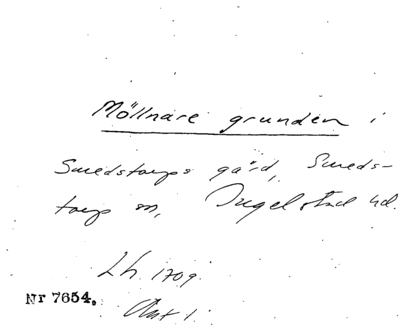 Möllnare grunden i
Smedstorps gård, Smeds-
torp sn, Ingelstad hd.
Lh. 1709.
Nr 7654.